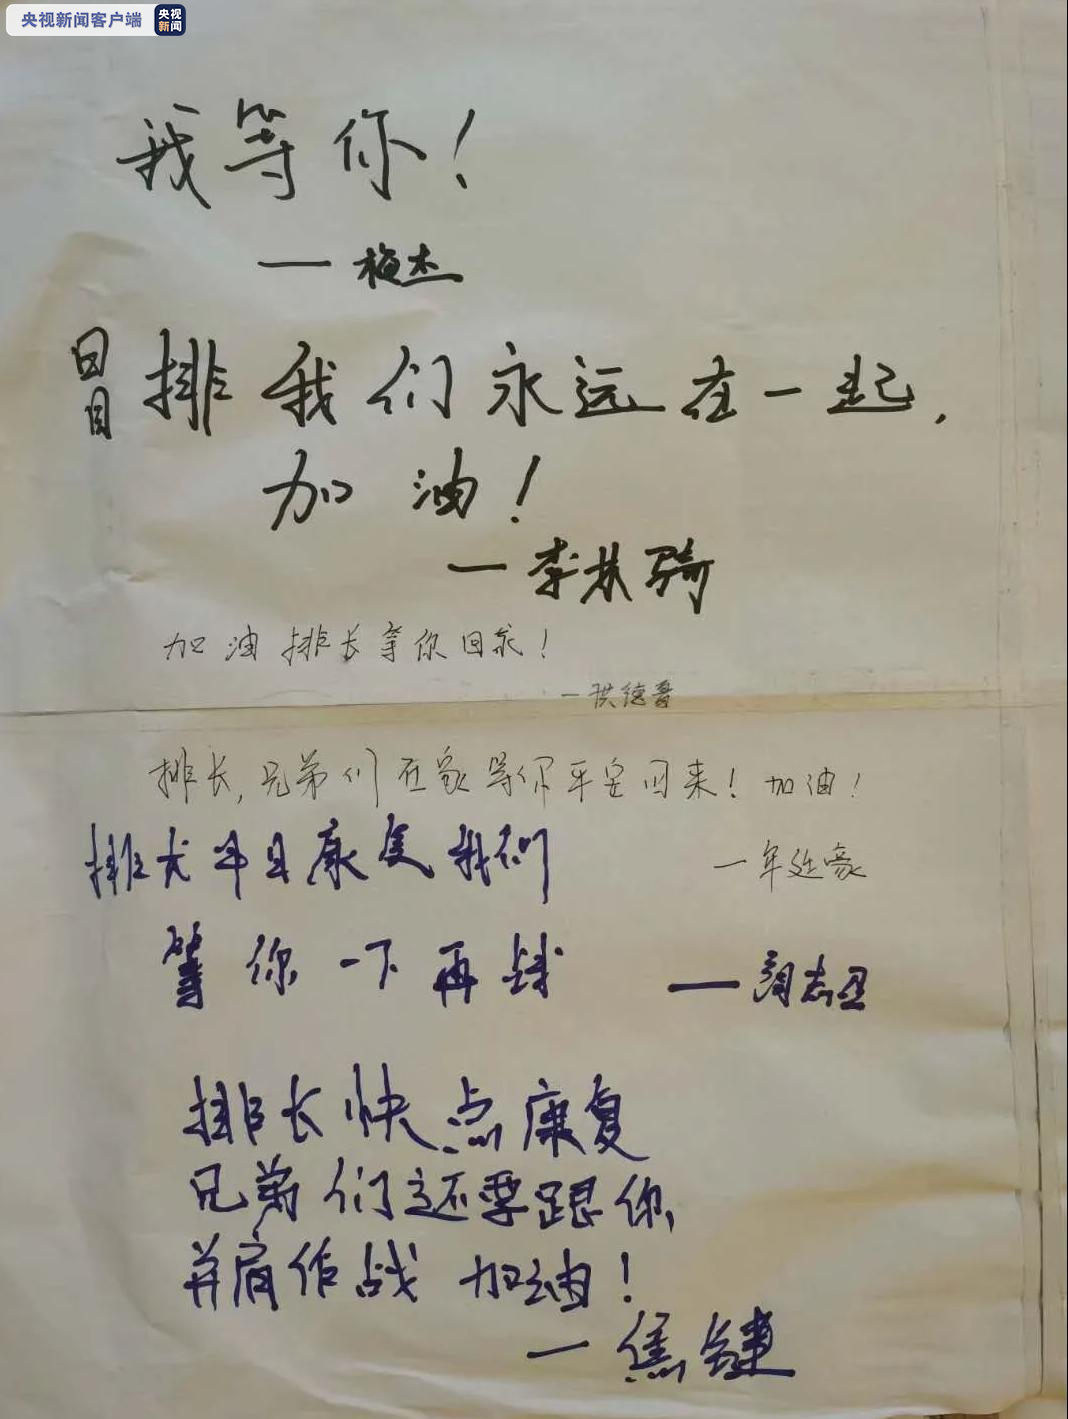 央视新闻客户端
央视新闻
我等你!
— 梅杰
冒排我们永远在一起,
加油!
— 李林骑
加油排长等你回家!
— 洪德
排长,兄弟们在家等你平安回来!加油!
排长早日康复我们
— 年廷豪
等你一下再战
— 志卫
排长快点康复
兄弟们还要跟你
并肩作战 加油!
— 焦键